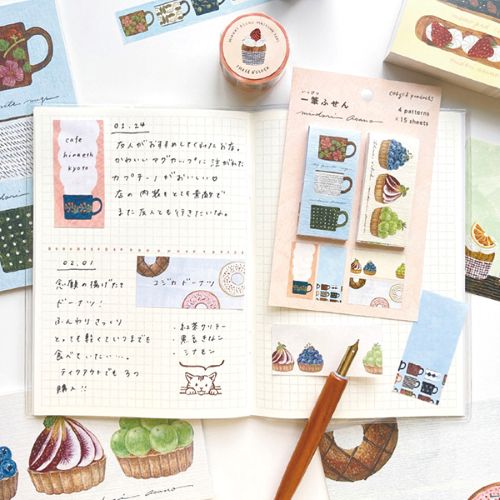 cafe
hinaeth
kyoto
01.24
友人がおすすめしてくれたお店。
かわいいマグカップに注がれた
カプチーノがおいしい♡
店の内装もとても素敵で
また友人とも行きたいな。
02.01
念願の揚げたて
ドーナツ!
ふんわりさっくり
とっても軽くていつまでも
食べていたい…。
テイクアウトでも3つ
購入!!
コジカドーナツ
・紅茶クリーム
・黒豆きなこ
・シナモン
MASKING TAPE
一筆ふせん
midori asano
4 patterns
×15 sheets
midori asano